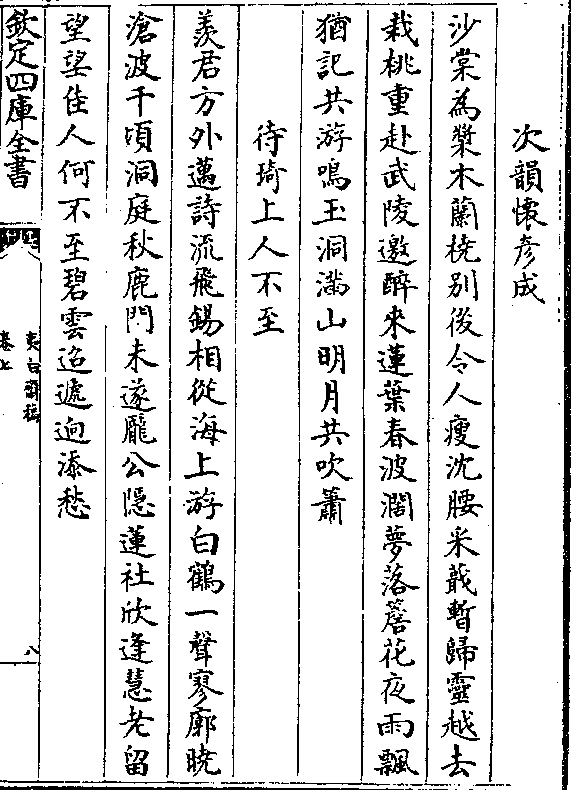 次韻懷彦成
沙棠為槳木蘭橈别後令人瘦沈腰采蕺暫歸靈越去
栽桃重赴武陵邀醉來蓮葉春波濶夢落簷花夜雨飄
猶記共游鳴玉洞滿山明月共吹簫
待琦上人不至
羨君方外邁詩流飛錫相從海上游白鶴一聲寥廓曉
滄波千頃洞庭秋鹿門未遂龐公隠蓮社欣逢慧老留
望望佳人何不至碧雲迢遞迥添愁
欽定四庫全書
夷白齋稿
卷上
八